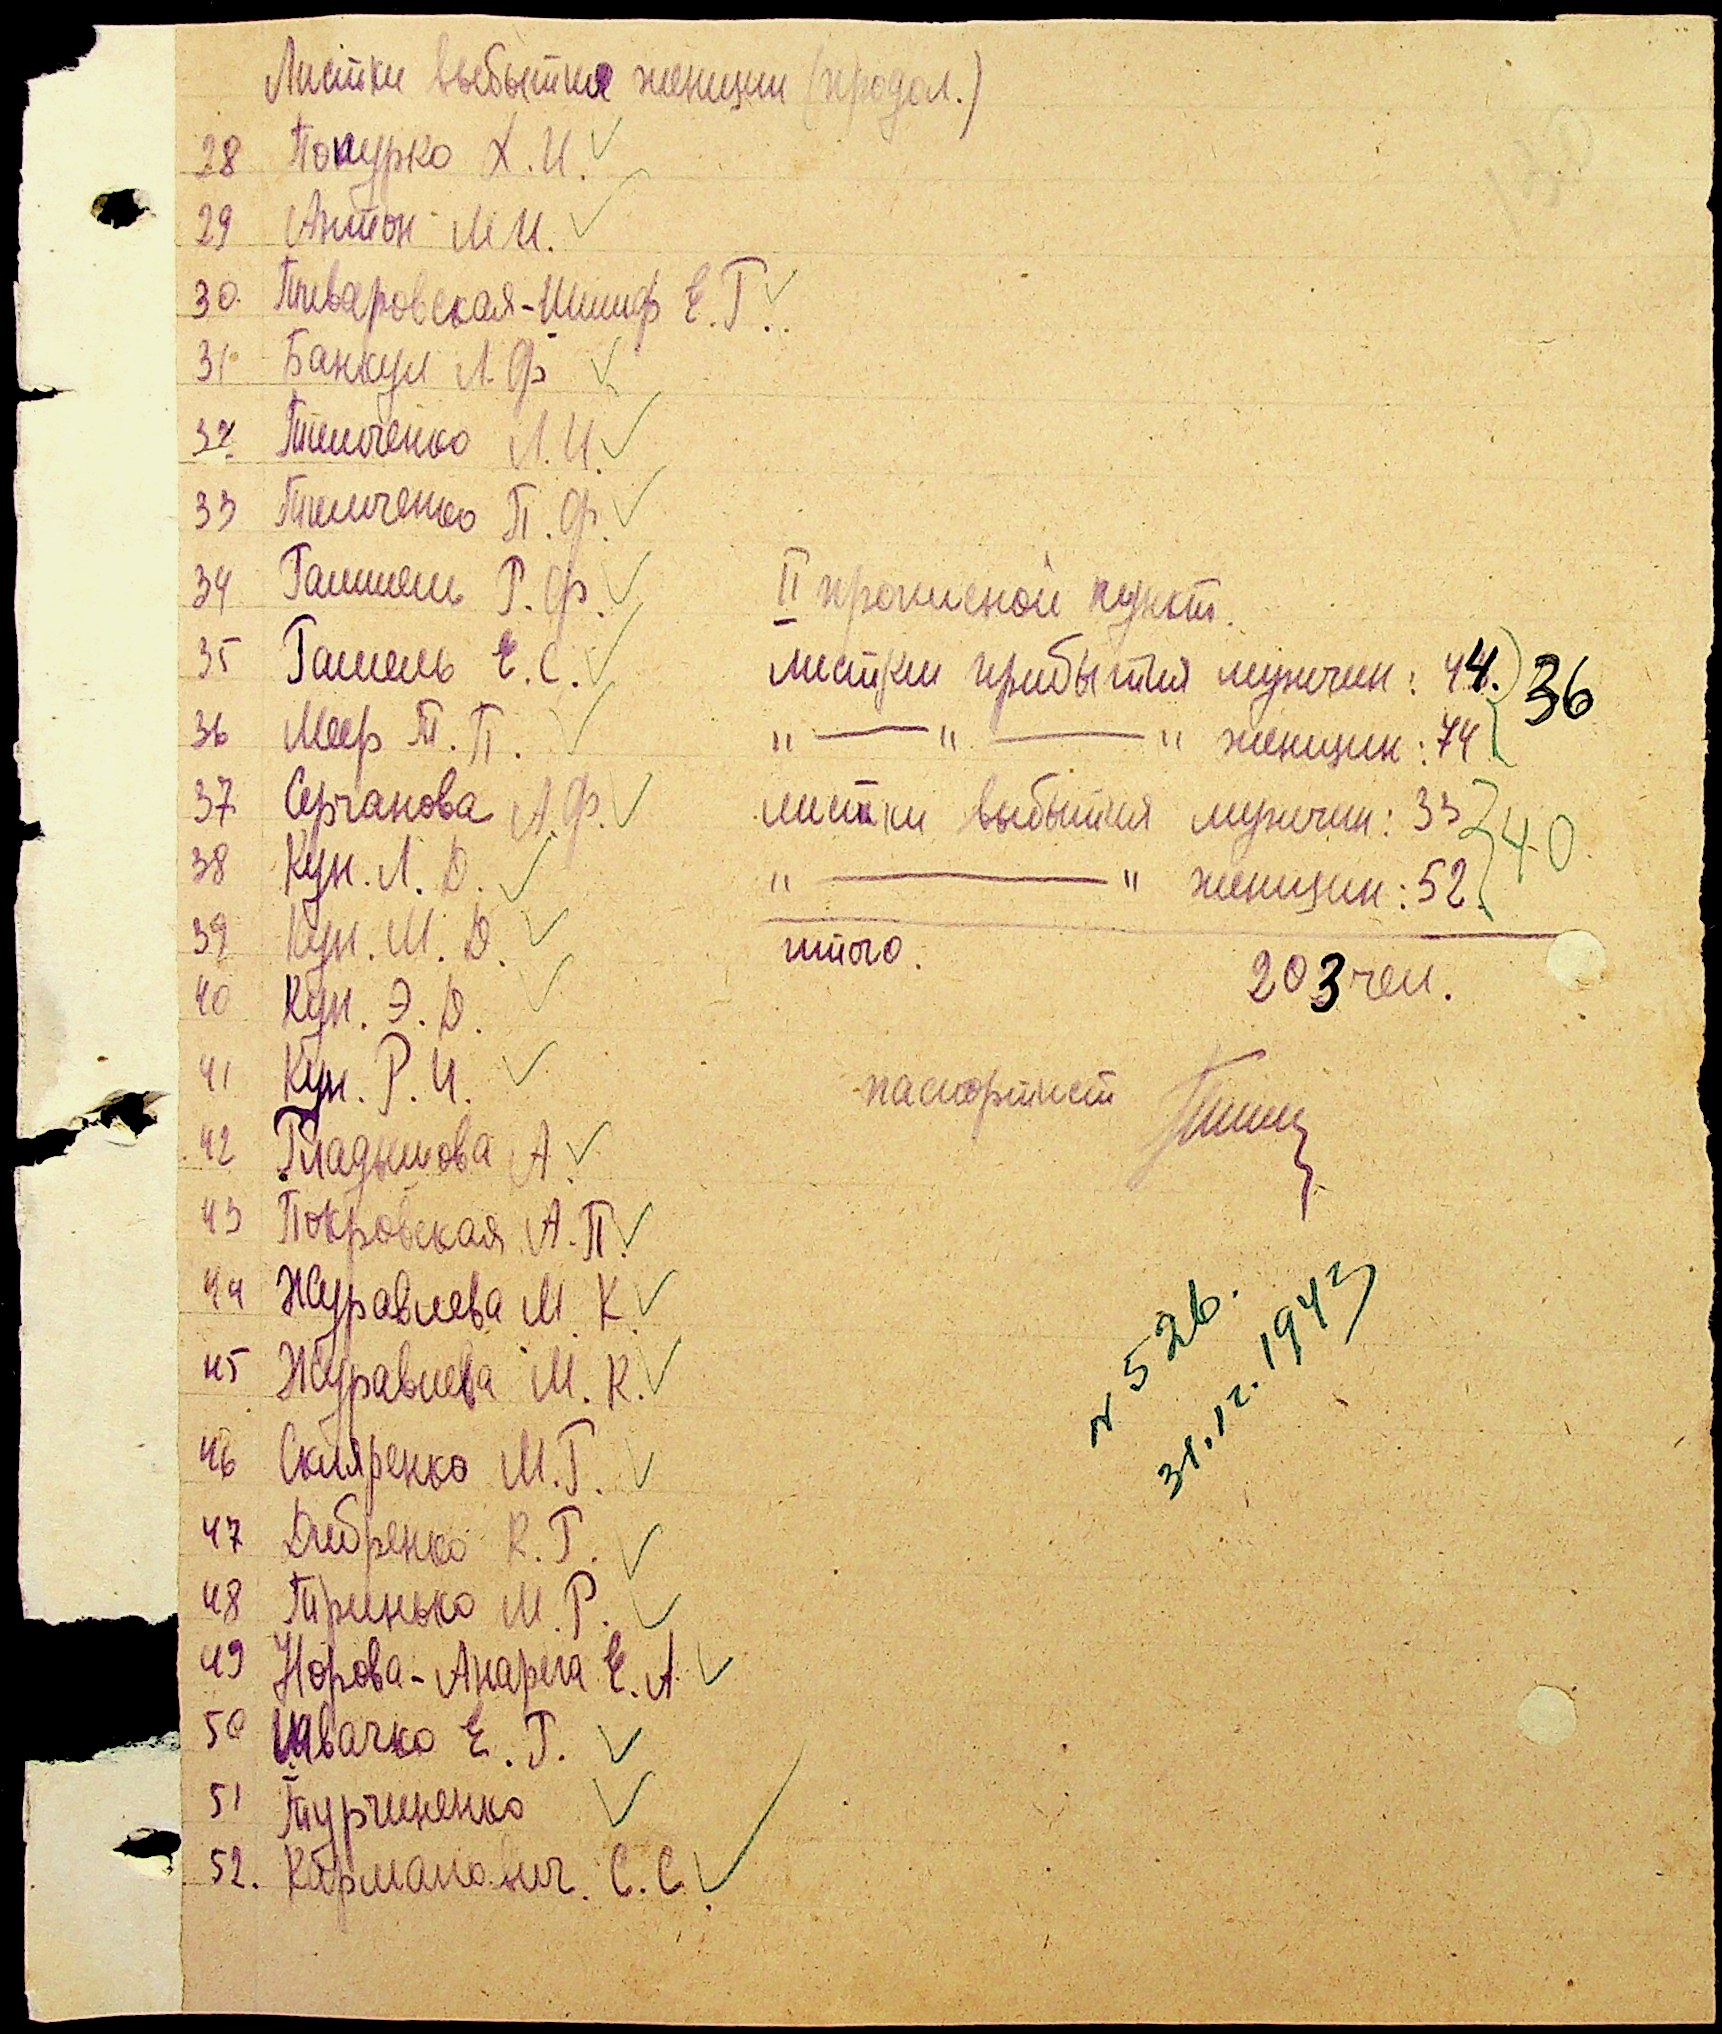 Листки выбытия женщин (продол.)
28 Покурко Х.И.
29 Антон М И.
30. Пиваровская-Шимф Е.Г.
31 Банкул Л Ф
32. Тимченко Л.И.
33 Тимченко П.Ф.
34 Гаммель Р.Ф.
35 Гамель Е.С.
36 Меер Т.П.
37 Серчанова А.Ф.
38 Кун. Л. Д.
39 Кун. М. Д.
40 Кун. Э. Д.
41 Кун. Р. И.
42 Гладышова А.
43 Покровская А.П.
44 Журавлева М. К.
45 Журавлева М. К.
46 Скляренко М.Г.
47 Дибренко К.Г.
48 Тринько М.Р.
49 Норова- Е.А
50 Швачко Е.Г.
51 Турчиненко
52. Кирманович. С.С.
II прописной пункт.
листки прибытия мужчин: 44. } 36
" — " — " женщин: 74
листки выбытия мужчин: 33 } 40
" — " женщин: 52.
итого. 203 чел.
паспортист
N 526.
31.12.1943